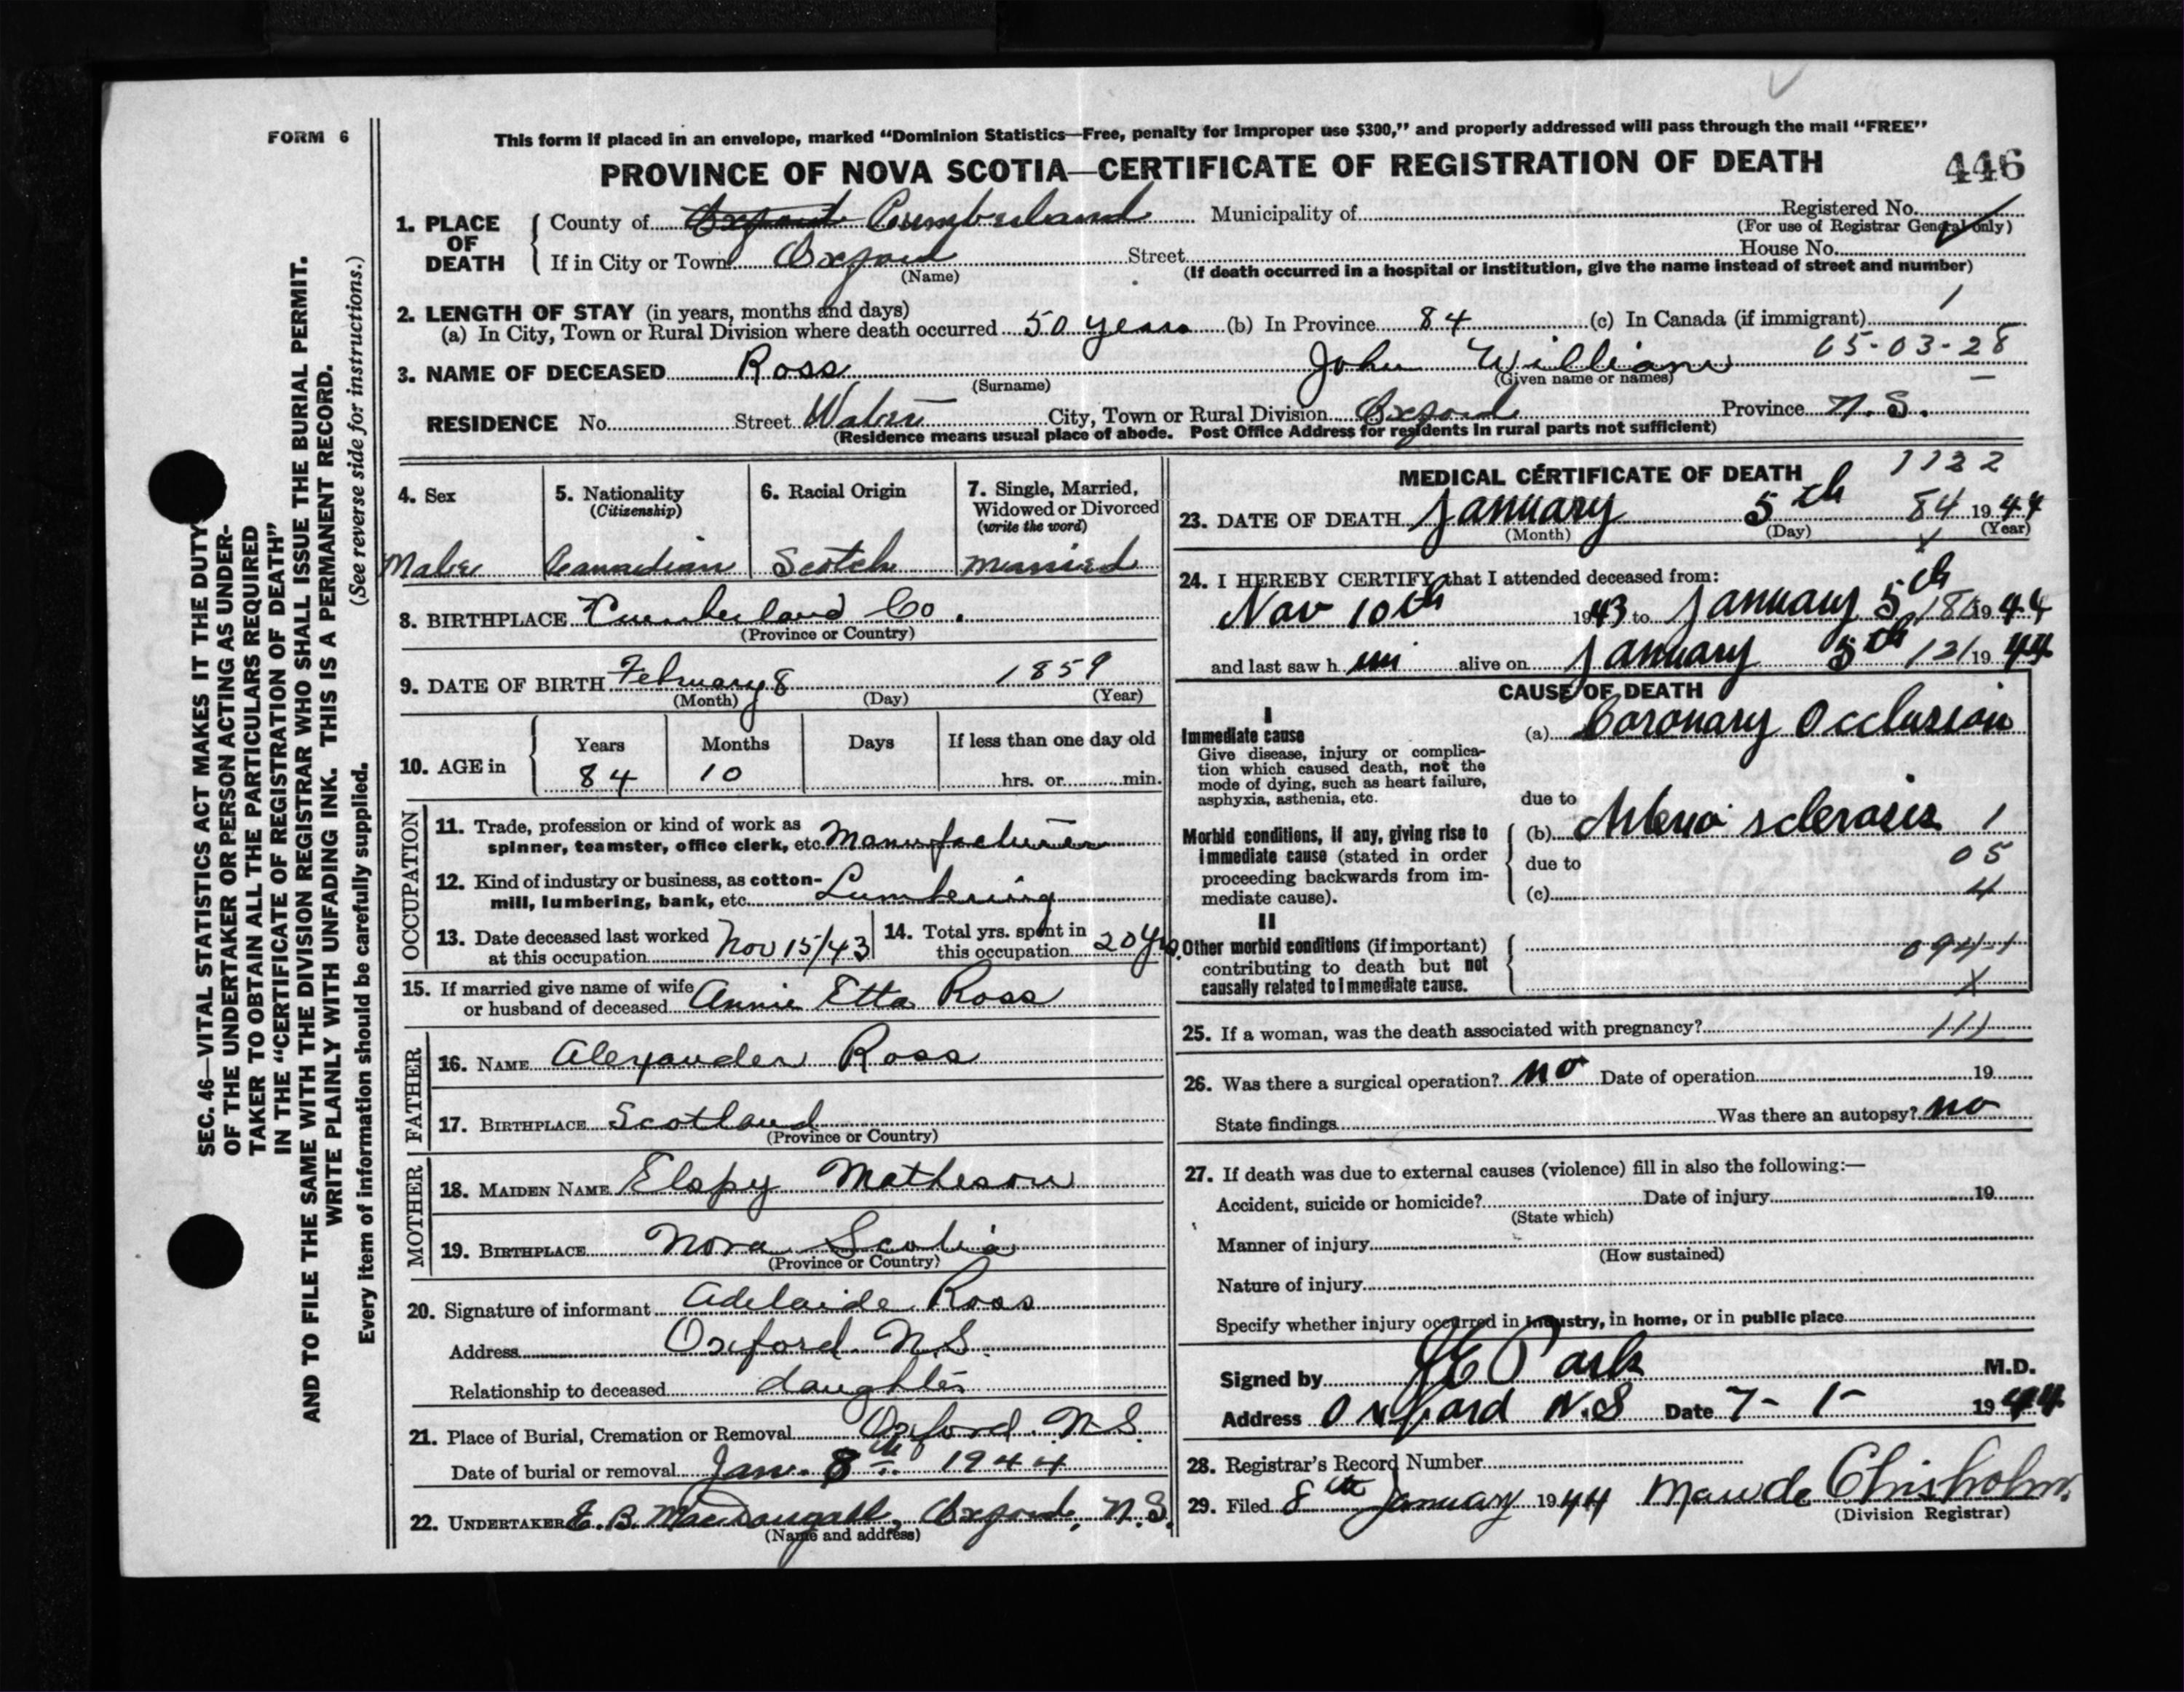 FORM 6
This form if placed in an envelope, marked “Dominion Statistics—Free, penalty for improper use $300,” and properly addressed will pass through the mail “FREE”
PROVINCE OF NOVA SCOTIA—CERTIFICATE OF REGISTRATION OF DEATH
446
1. PLACE OF DEATH
County of Oxford Cumberland Municipality of Registered No.
(For use of Registrar General only)
If in City or Town Oxford Street House No.
(Name) (If death occurred in a hospital or institution, give the name instead of street and number)
2. LENGTH OF STAY (in years, months and days) 1
(a) In City, Town or Rural Division where death occurred 50 years (b) In Province 84 (c) In Canada (if immigrant)
3. NAME OF DECEASED Ross John William 05-03-28
(Surname) (Given name or names)
RESIDENCE No. Street Water City, Town or Rural Division Oxford Province N.S.
(Residence means usual place of abode. Post Office Address for residents in rural parts not sufficient)
SEC. 46—VITAL STATISTICS ACT MAKES IT THE DUTY
OF THE UNDERTAKER OR PERSON ACTING AS UNDER-
TAKER TO OBTAIN ALL THE PARTICULARS REQUIRED
IN THE “CERTIFICATE OF REGISTRATION OF DEATH”
AND TO FILE THE SAME WITH THE DIVISION REGISTRAR WHO SHALL ISSUE THE BURIAL PERMIT.
WRITE PLAINLY WITH UNFADING INK. THIS IS A PERMANENT RECORD.
Every item of information should be carefully supplied. (See reverse side for instructions.)
4. Sex
Male
5. Nationality
(Citizenship)
Canadian
6. Racial Origin
Scotch
7. Single, Married,
Widowed or Divorced
(write the word)
Married
8. BIRTHPLACE Cumberland Co.
(Province or Country)
9. DATE OF BIRTH February 8 1859
(Month) (Day) (Year)
10. AGE in
Years Months Days If less than one day old
84 10 hrs. or min.
OCCUPATION
11. Trade, profession or kind of work as
spinner, teamster, office clerk, etc. Manufacturer
12. Kind of industry or business, as cotton-
mill, lumbering, bank, etc. Lumbering
13. Date deceased last worked
at this occupation Nov 15/43
14. Total yrs. spent in
this occupation 20 yrs.
15. If married give name of wife
or husband of deceased Annie Etta Ross
FATHER
16. NAME Alexander Ross
17. BIRTHPLACE Scotland
(Province or Country)
MOTHER
18. MAIDEN NAME Elspy Matheson
19. BIRTHPLACE Nova Scotia
(Province or Country)
20. Signature of informant Adelaide Ross
Address Oxford N.S.
Relationship to deceased daughter
21. Place of Burial, Cremation or Removal Oxford N.S.
Date of burial or removal Jan. 8th 1944
22. UNDERTAKER E. B. MacDougall, Oxford, N.S.
(Name and address)
MEDICAL CERTIFICATE OF DEATH 1122
23. DATE OF DEATH January 5th 84 1944
(Month) (Day) (Year)
24. I HEREBY CERTIFY that I attended deceased from:
Nov 10th 1943 to January 5th 1944
and last saw h im alive on January 5th 121 1944
CAUSE OF DEATH
I
Immediate cause
Give disease, injury or complica-
tion which caused death, not the
mode of dying, such as heart failure,
asphyxia, asthenia, etc.
(a) Coronary Occlusion
due to
Morbid conditions, if any, giving rise to
immediate cause (stated in order
proceeding backwards from im-
mediate cause).
(b) Arterio sclerosis 1
due to 05
(c) 4
II
Other morbid conditions (if important)
contributing to death but not
causally related to immediate cause.
094-1
X
25. If a woman, was the death associated with pregnancy? 111
26. Was there a surgical operation? no Date of operation 19
State findings Was there an autopsy? no
27. If death was due to external causes (violence) fill in also the following:—
Accident, suicide or homicide? Date of injury 19
(State which)
Manner of injury
(How sustained)
Nature of injury
Specify whether injury occurred in industry, in home, or in public place
Signed by J E Park M.D.
Address Oxford N.S Date 7-1- 1944
28. Registrar's Record Number
29. Filed 8th January 1944 Maude Chisholm.
(Division Registrar)